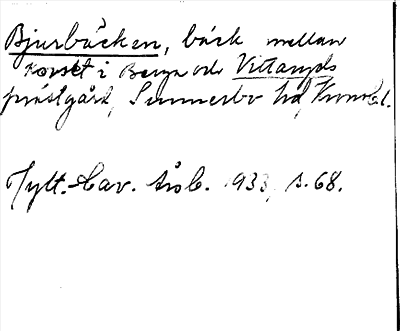 Bjurbäcken, bäck mellan
Korset i Berga och Vittaryds
prästgård, Sunnerbo hd, Kronobl.
Hylt.-Cav. årsb. 1933, s. 68.